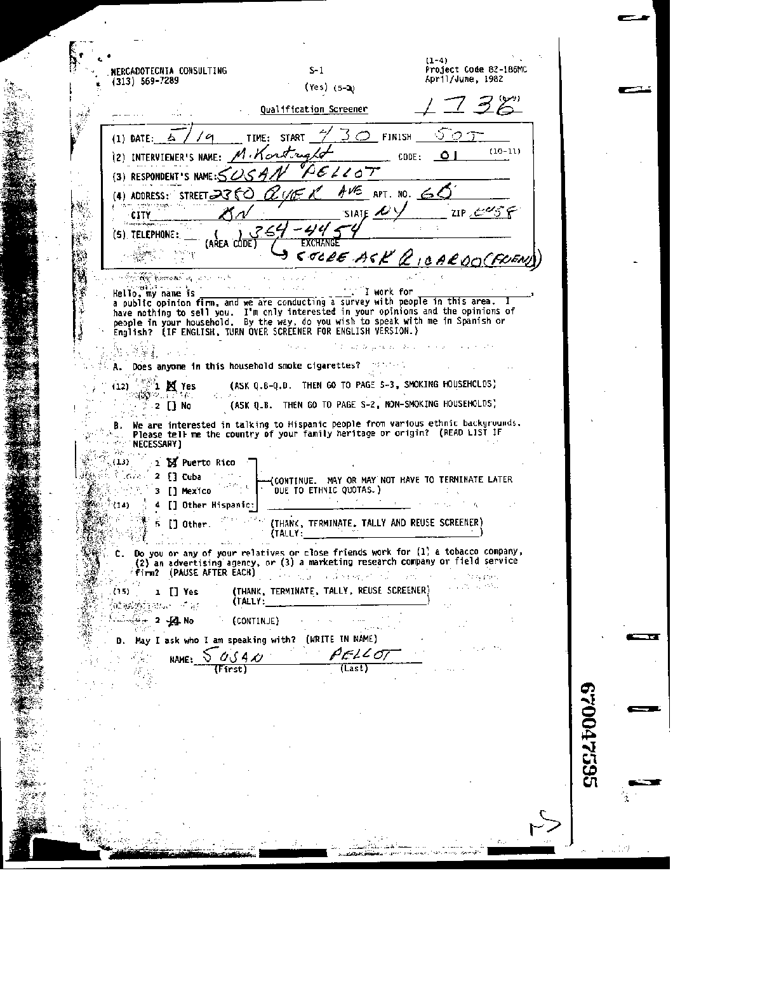 (1-4)
MERCADOTECNIA CONSULTING S-1 Project Code 82-186MC
(313) 569-7289 April/June, 1982
(Yes)
1736
Qualification Screener
(1) DATE: 5/19 TIME: START 4 30 FINISH 505
(2) INTERVIEWER'S NAME: CODE: 01 (10-11)
(3) RESPONDENT'S NAME: SUSAN PELLOT
(4) ADDRESS: STREET AVE APT. NO.
CITY BN STATE NY ZIP
(5) TELEPHONE: ( ) 364-4454
(AREA CODE) EXCHANGE
ASK RICARDO (FRIEND)
Hello, my name is I work for ,
a public opinion firm, and we are conducting a survey with people in this area. I
have nothing to sell you. I'm only interested in your opinions and the opinions of
people in your household. By the way, do you wish to speak with me in Spanish or
English? (IF ENGLISH, TURN OVER SCREENER FOR ENGLISH VERSION.)
A. Does anyone in this household smoke cigarettes?
(12) 1 [X] Yes (ASK Q.B-Q.D. THEN GO TO PAGE S-3, SMOKING HOUSEHOLDS)
2 [] No (ASK Q.B. THEN GO TO PAGE S-2, NON-SMOKING HOUSEHOLDS)
B. We are interested in talking to Hispanic people from various ethnic backgrounds.
Please tell me the country of your family heritage or origin? (READ LIST IF
NECESSARY)
(13) 1 [X] Puerto Rico
2 [] Cuba (CONTINUE. MAY OR MAY NOT HAVE TO TERMINATE LATER
3 [] Mexico DUE TO ETHNIC QUOTAS.)
(14) 4 [] Other Hispanic:
5 [] Other. (THANK, TERMINATE, TALLY AND REUSE SCREENER)
(TALLY: )
C. Do you or any of your relatives or close friends work for (1) a tobacco company,
(2) an advertising agency, or (3) a marketing research company or field service
firm? (PAUSE AFTER EACH)
(15) 1 [] Yes (THANK, TERMINATE, TALLY, REUSE SCREENER)
(TALLY: )
2 [X] No (CONTINUE)
D. May I ask who I am speaking with? (WRITE IN NAME)
NAME: SUSAN PELLOT
(First) (Last)
670047595